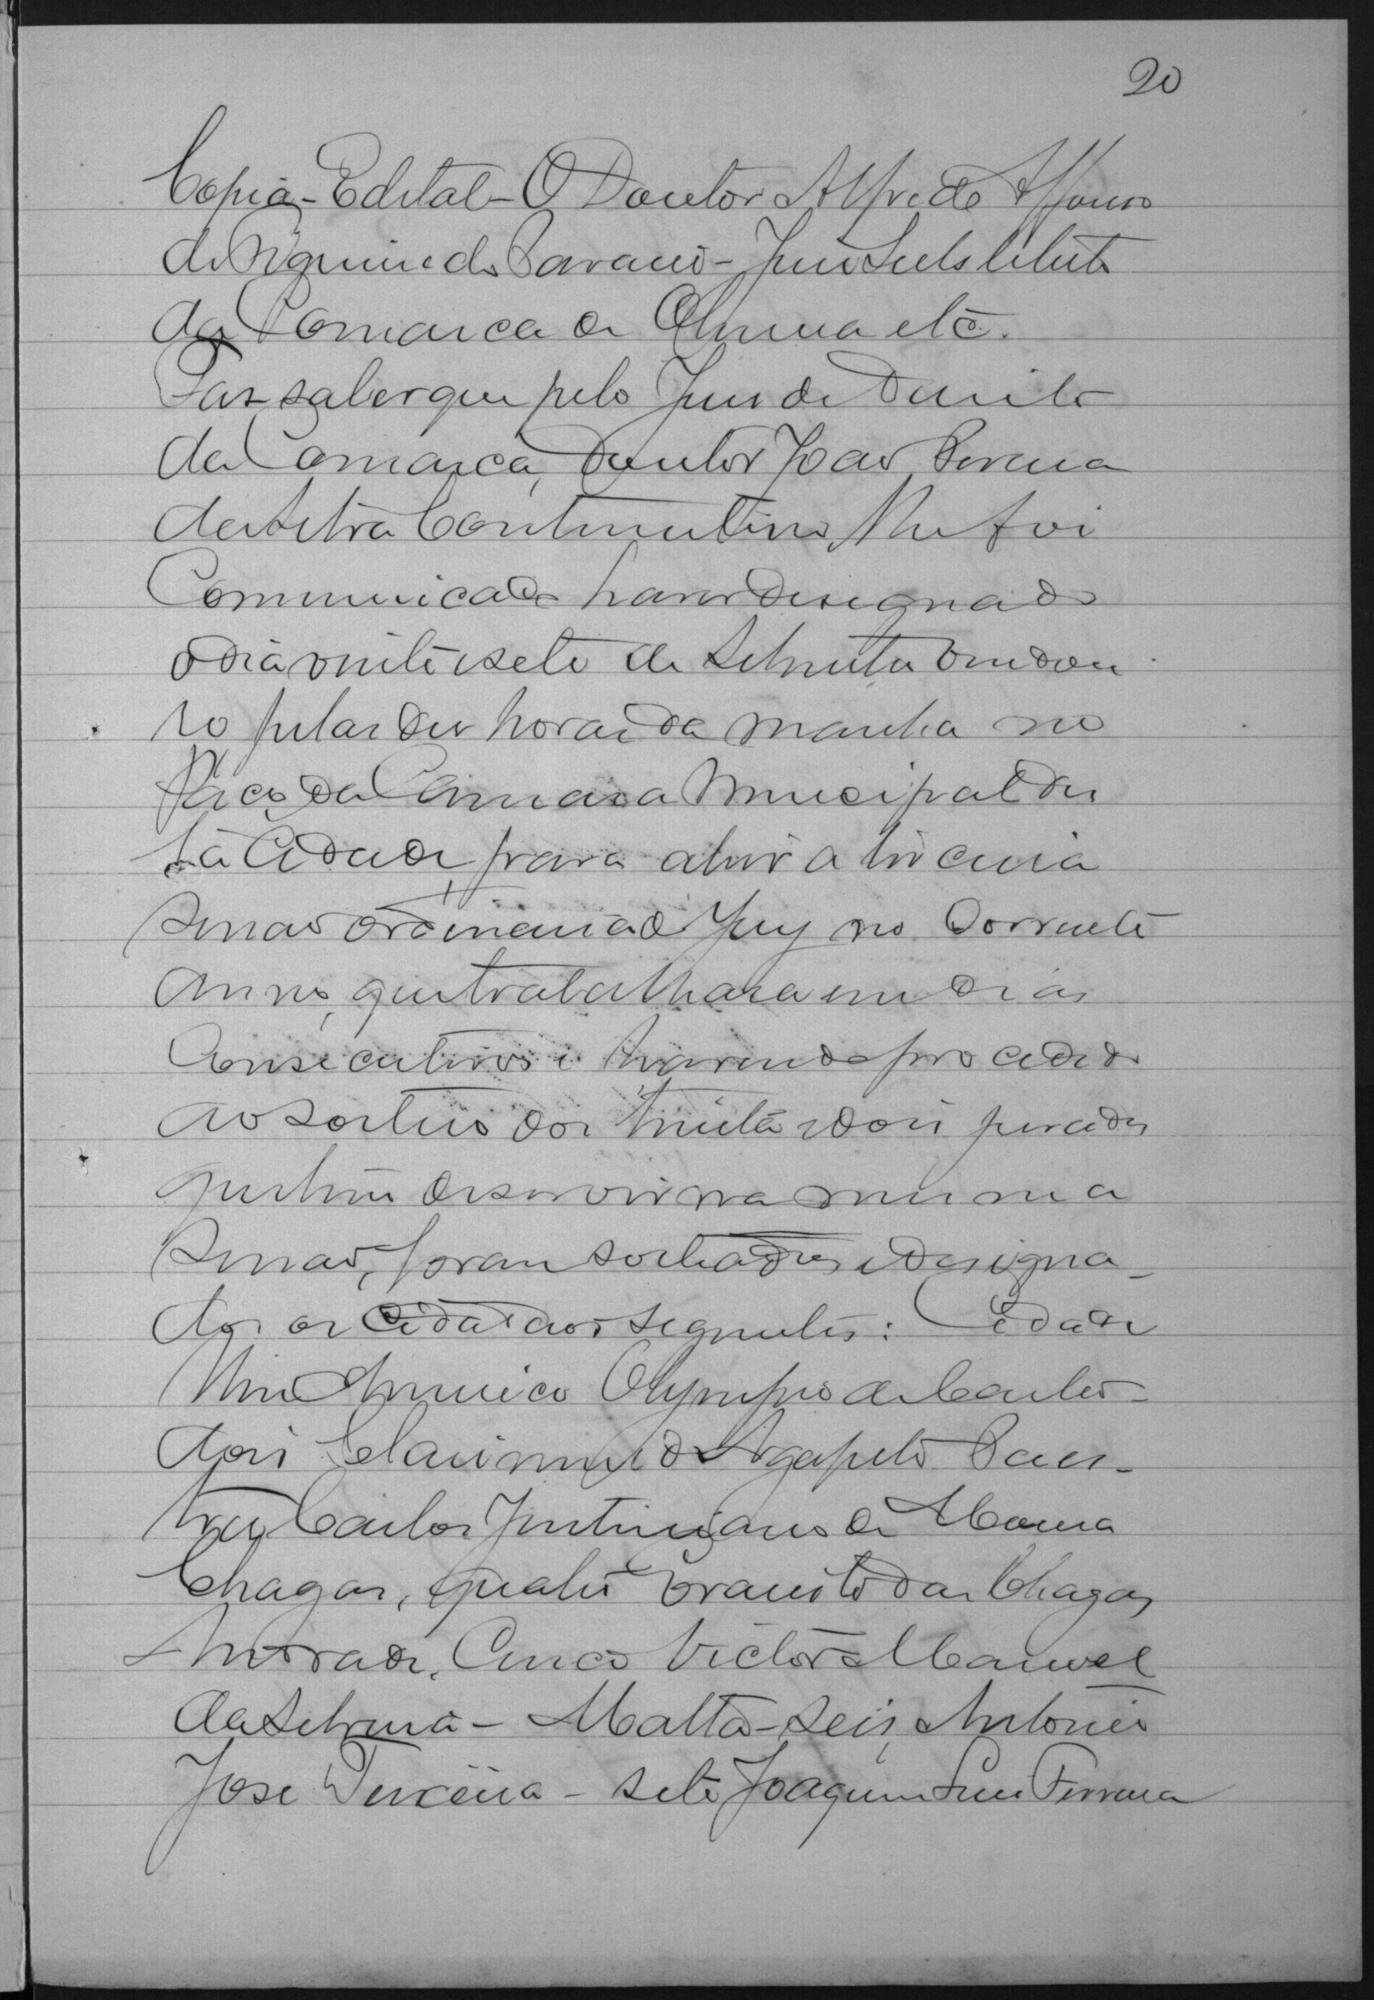 20
Copia - Edital - O Doutor Alfredo Affonso
de Figueiredo - Juiz Substituto
da Comarca de etc.
Faz saber que pelo Juiz de Direito
da Comarca, Doutor João Pereira
da Silva Continentino, Me foi
Communicado haver designado
o dia vinte e sete de Setembro vindou-
ro pelas dez horas da manha no
Paço da Camara Municipal des
ta Cidade para abrir a terceira
sessao ordinaria do Jury no Corrente
anno, que trabalhara em dias
Consecutivos e havendo procedido
ao sorteio dos trinta e dois jurados
que tem de servir na mesma
sessao, foram sorteados e designa-
dos os Cidadaos seguintes: Cidade
Um Americo Olympio de Castro -
dois Agapeto Paes -
tres Carlos Justiniano das
Chagas, quatro das Chagas
Andrade, Cinco Victor Manoel
da Silveira - Matta - seis, Antonio
Jose Teixeira - sete Joaquim Luis Ferreira